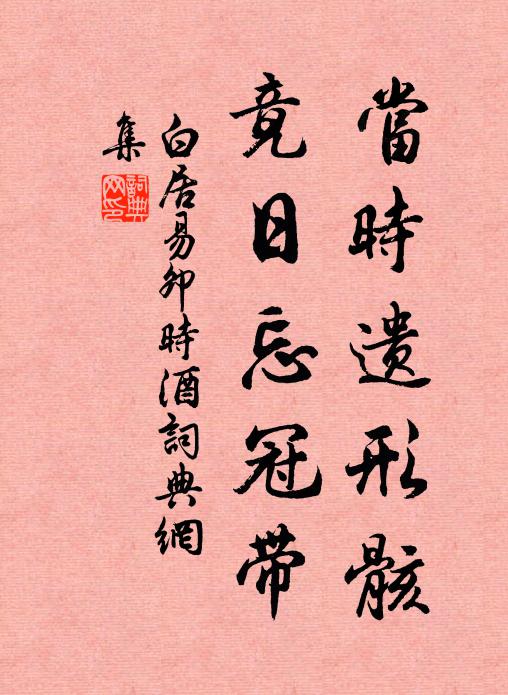 當時遺形骸
竟日忘冠帶
白居易卯時酒詞典網
集
詞典
网印